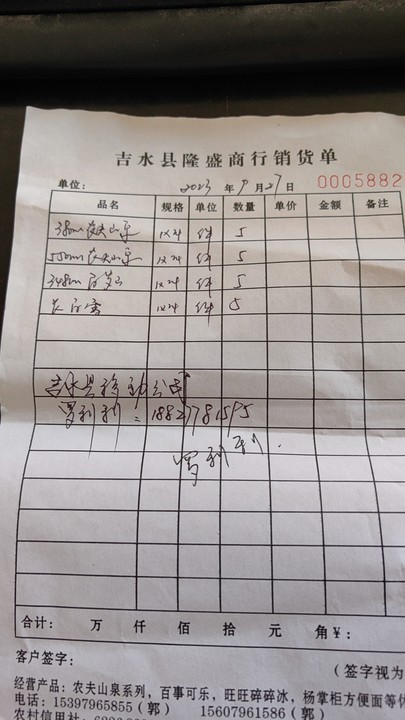 吉水县隆盛商行销货单
单位： 2023 年 9 月 27 日 0005882
品名 规格 单位 数量 单价 金额 备注
380ml 农夫山泉 1×24 件 5
550ml 农夫山泉 1×24 件 5
348ml 百岁山 1×24 件 5
1×24 件 5
吉水县移动公司
罗利利：
罗利利.
合计： 万 仟 佰 拾 元 角 ¥：
客户签字：
（签字视为
经营产品：农夫山泉系列，百事可乐，旺旺碎碎冰，杨掌柜方便面等休
电话：15397965855（郭） 15607961586（郭）
农村信用社：